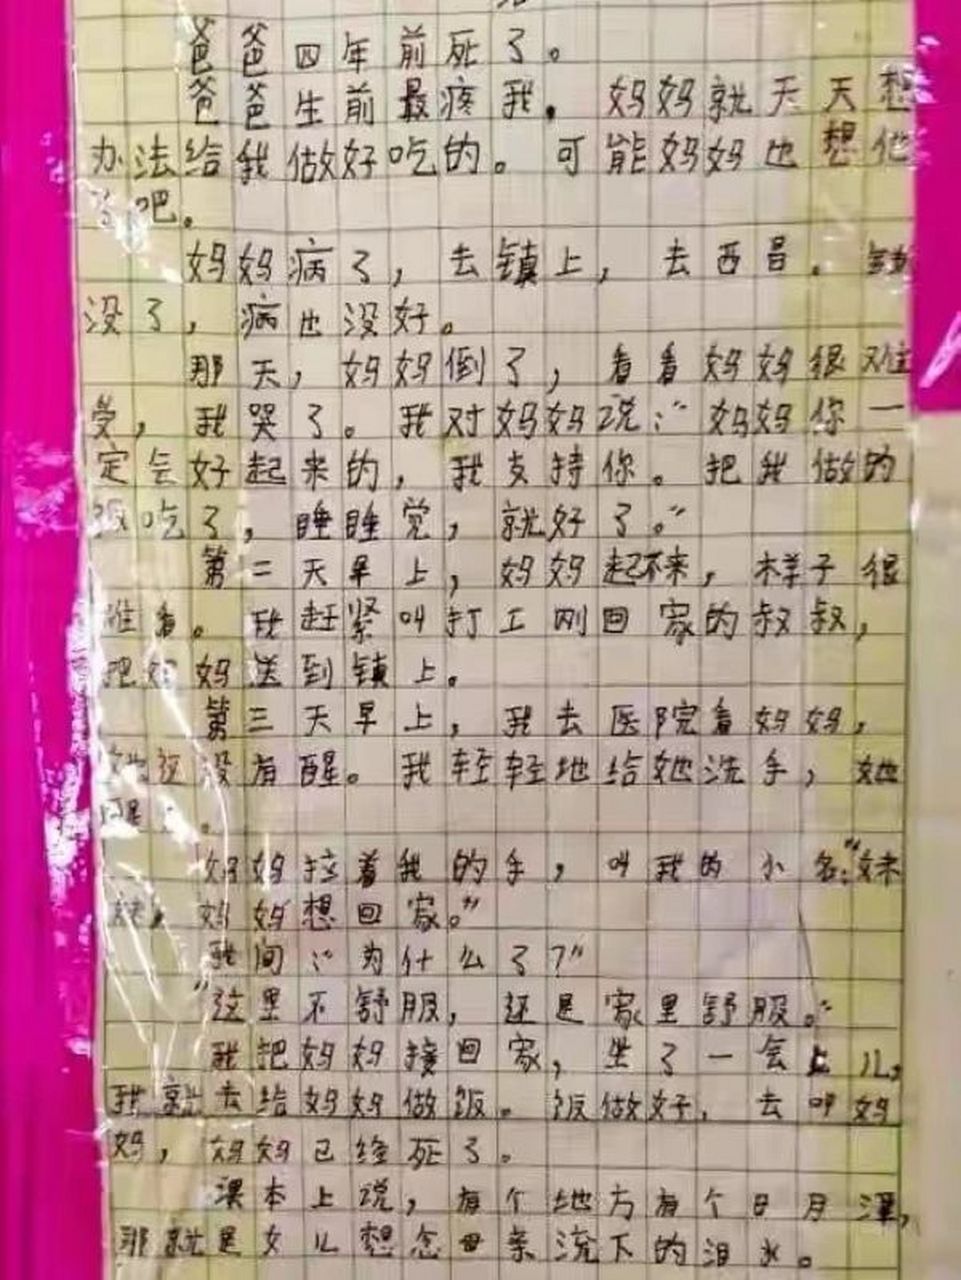 爸爸四年前死了。
爸爸生前最疼我。妈妈就天天想
办法给我做好吃的。可能妈妈也想他
了吧。
妈妈病了，去镇上，去西昌。钱
没了，病也没好。
那天，妈妈倒了，看看妈妈很难
受，我哭了。我对妈妈说：“妈妈你一
定会好起来的，我支持你。把我做的
饭吃了，睡睡觉，就好了。”
第二天早上，妈妈起不来，样子很
难看。我赶紧叫打工刚回家的叔叔，
把妈妈送到镇上。
第三天早上，我去医院看妈妈，
她还没有醒。我轻轻地给她洗手，她
醒了。
妈妈拉着我的手，叫我的小名：“妹
妹，妈妈想回家。”
我问：“为什么了？”
“这里不舒服，还是家里舒服。”
我把妈妈接回家，坐了一会儿，
我就去给妈妈做饭。饭做好，去叫妈
妈，妈妈已经死了。
课本上说，有个地方有个日月潭，
那就是女儿想念母亲流下的泪水。